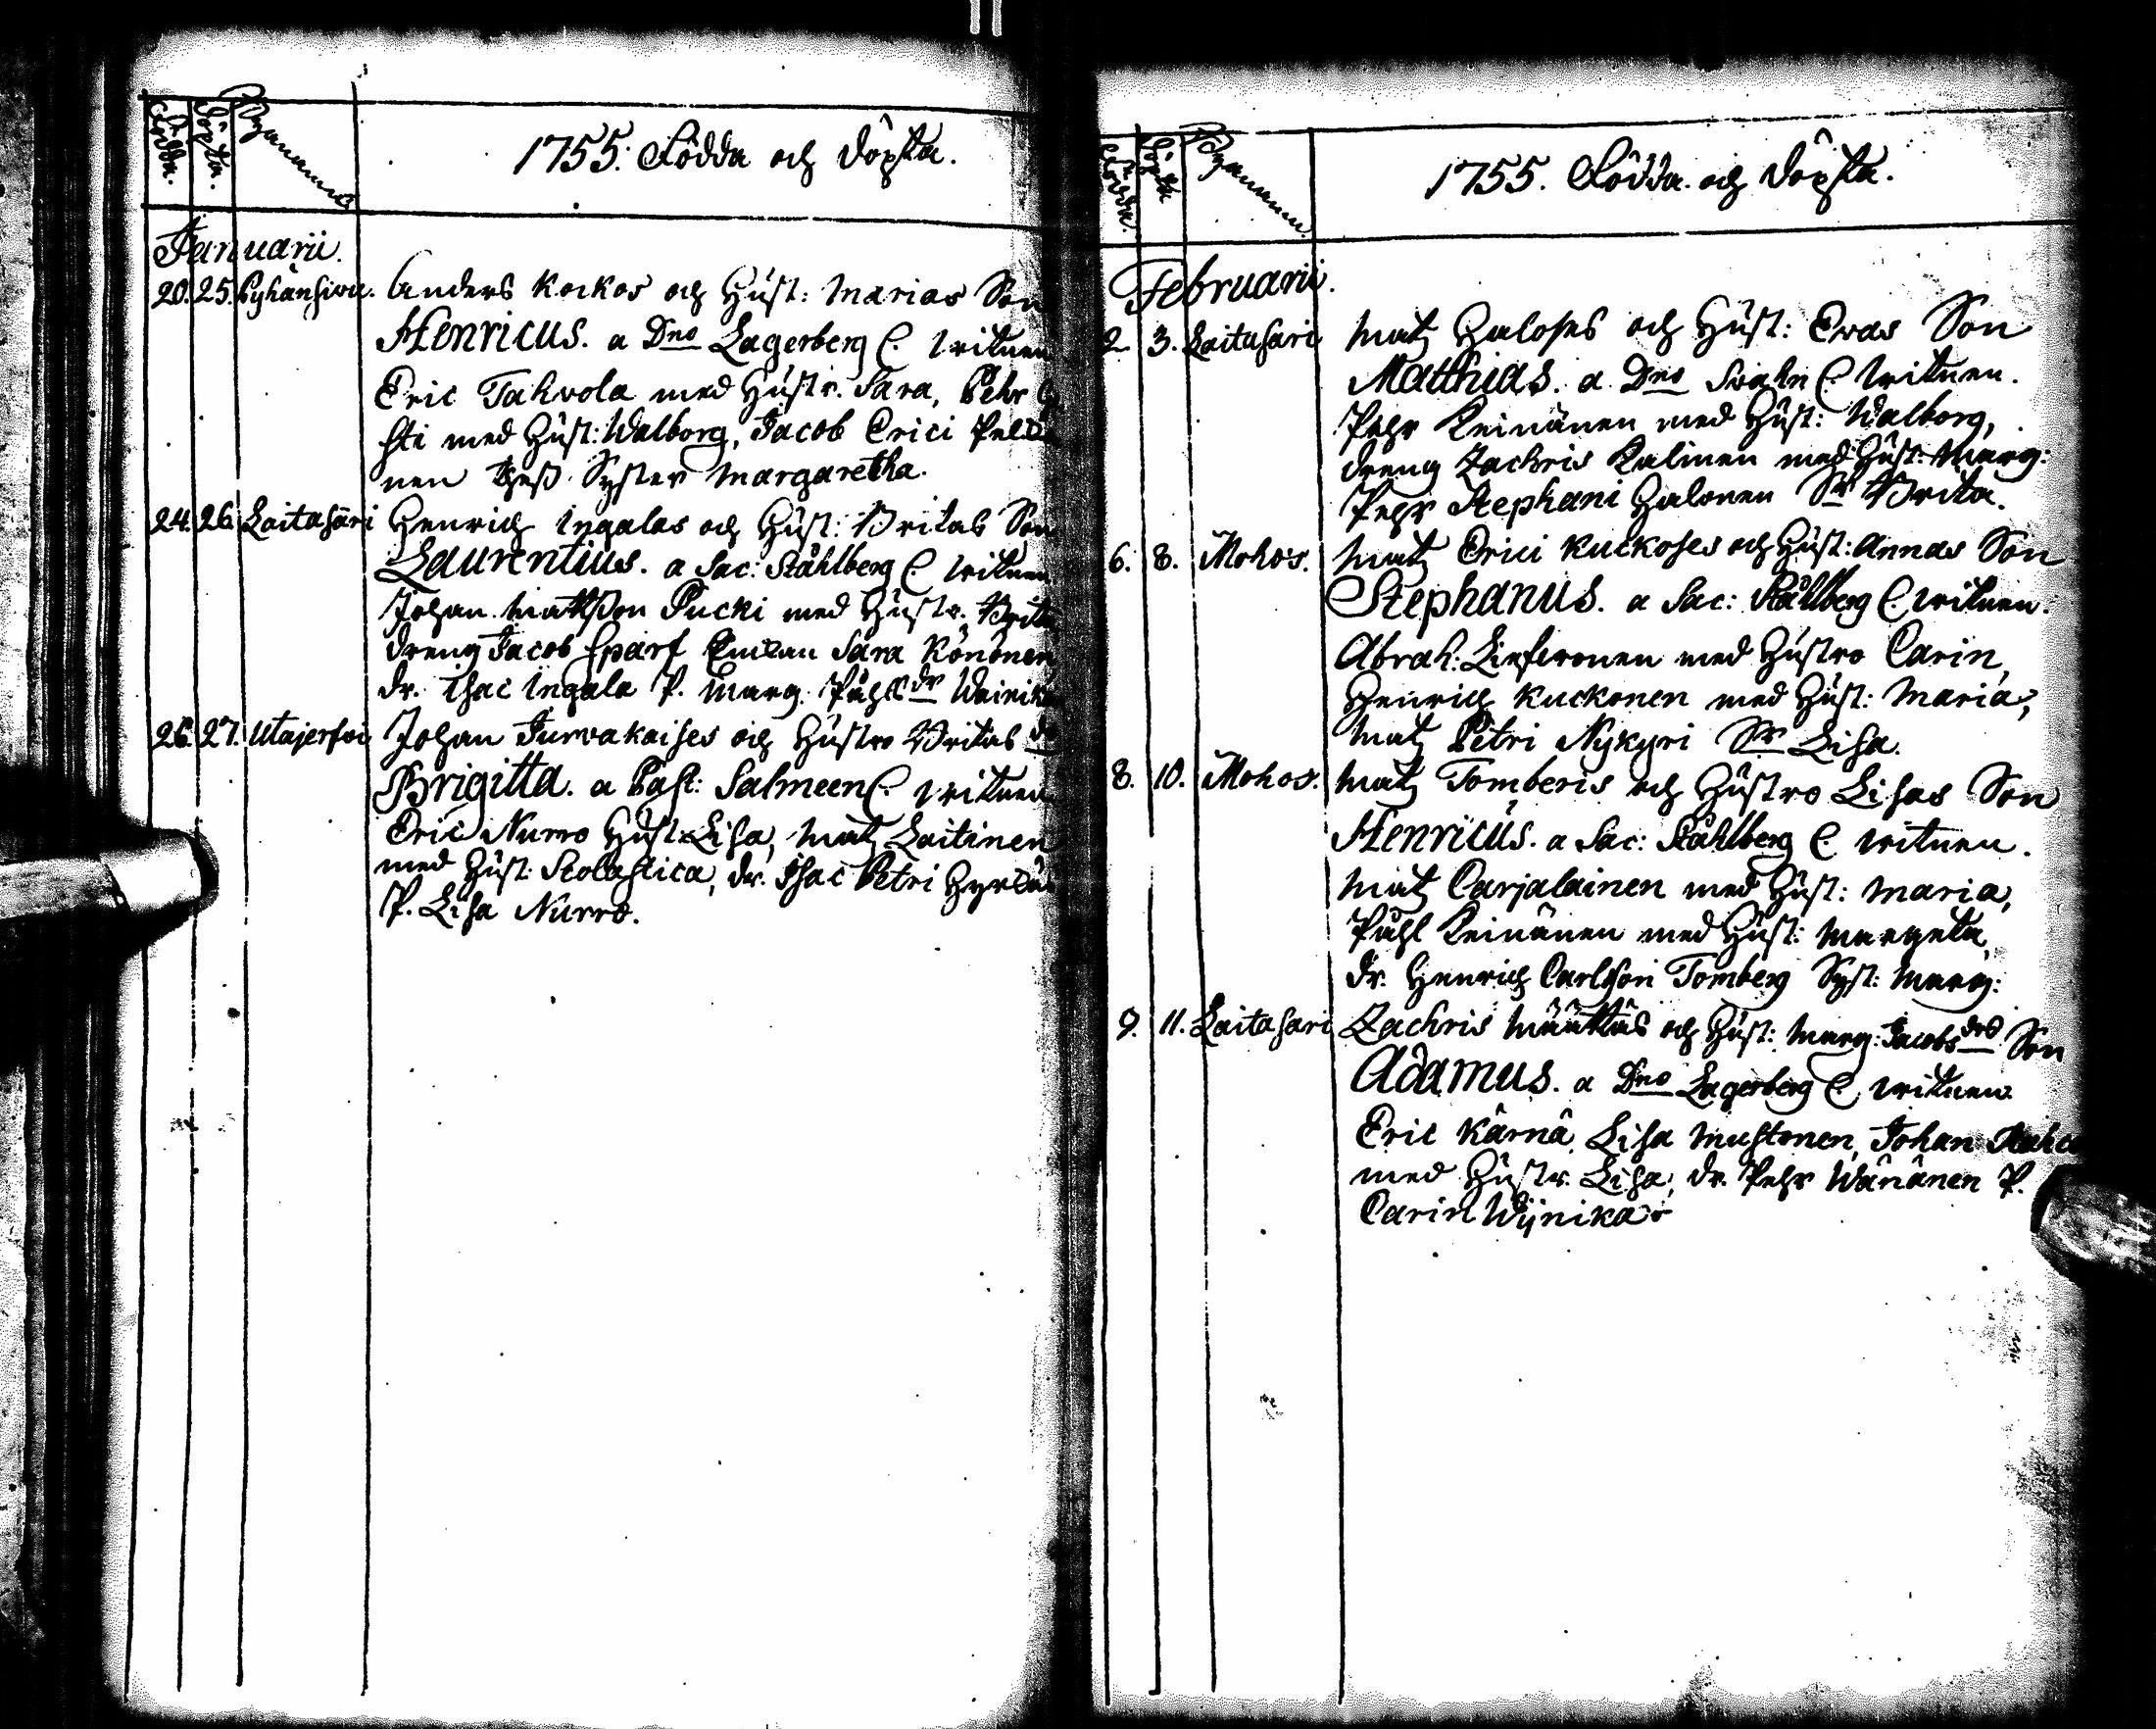 Födda.
Döpta.
Byanamn
1755. Födda och Döpta.
Januarii.
20. 25. Pyhänsivu. Anders Kockos och Hust: Marias Son
Henricus. a Dno Lagerberg C. Witnen
Eric Tahvola med Hustr. Sara, Pehr
sti med Hust: Walborg, Jacob Erici
nen theß Syster Margaretha.
24. 26. Laitasari Henrich Ingalas och Hust: Britas Son
Laurentius. a Sac: Ståhlberg C. Witnen
Johan Matsson Pucki med Hustr. Brita
dreng Jacob Sparf Enkan Sara Könönen
dr. Isac Ingala P. Marg. Påhls dr
26. 27. Utajerfvi Johan Jurvakaises och Hustro Britas dr
Brigitta. a Past: Salmeen C. Witnen
Eric Nurro Hust: Lisa, Mats Laitinen
med Hust: Scolastica, dr. Isac Petri
P. Lisa Nurro.
Födda.
Döpta
Byanamn.
1755. Födda och Döpta.
Februarii.
2 3. Laitasari Mats Haloses och Hust: Evas Son
Matthias. a Dno Svahn C. Witnen.
Pehr Keinänen med Hust: Walborg,
dreng Zachris Kalinen med Hust: Marg:
Pehr Stephani Halonen Sr Brita.
6. 8. Mohos. Mats Erici Kuckoses och Hust: Annas Son
Stephanus. a Sac: Ståhlberg C. Witnen.
Abrah: med Hustro Carin,
Henrich Kuckonen med Hust: Maria,
Mats Petri Nykyri Sr Lisa.
8. 10. Mohos. Mats Tomberis och Hustro Lisas Son
Henricus. a Sac: Ståhlberg C. Witnen.
Mats Carjalainen med Hust: Maria,
Påhl Keinänen med Hust: Margeta,
dr. Henrich Carlsson Tomberg Syst: Marg:
9. 11. Laitasari Zachris Määttäs och Hust: Marg: Jacobs drs Son
Adamus. a Dno Lagerberg C. Witnen
Eric Kärnä, Lisa Mustonen, Johan
med Hustr. Lisa, dr. Pehr Wänänen P.
Carin Wijnika